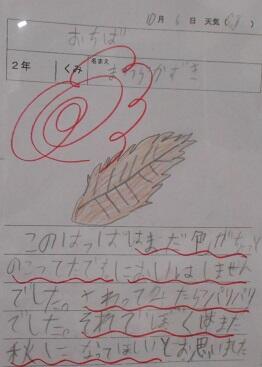 10月6日 天気( )
おちば
2年 1くみ 名まえ
このはっぱはまだ色がちょっと
のこってたでもにおいはしません
でした。さわってみたらパリパリ
でした。それでぼくはまた
秋になってほしいとお思いました